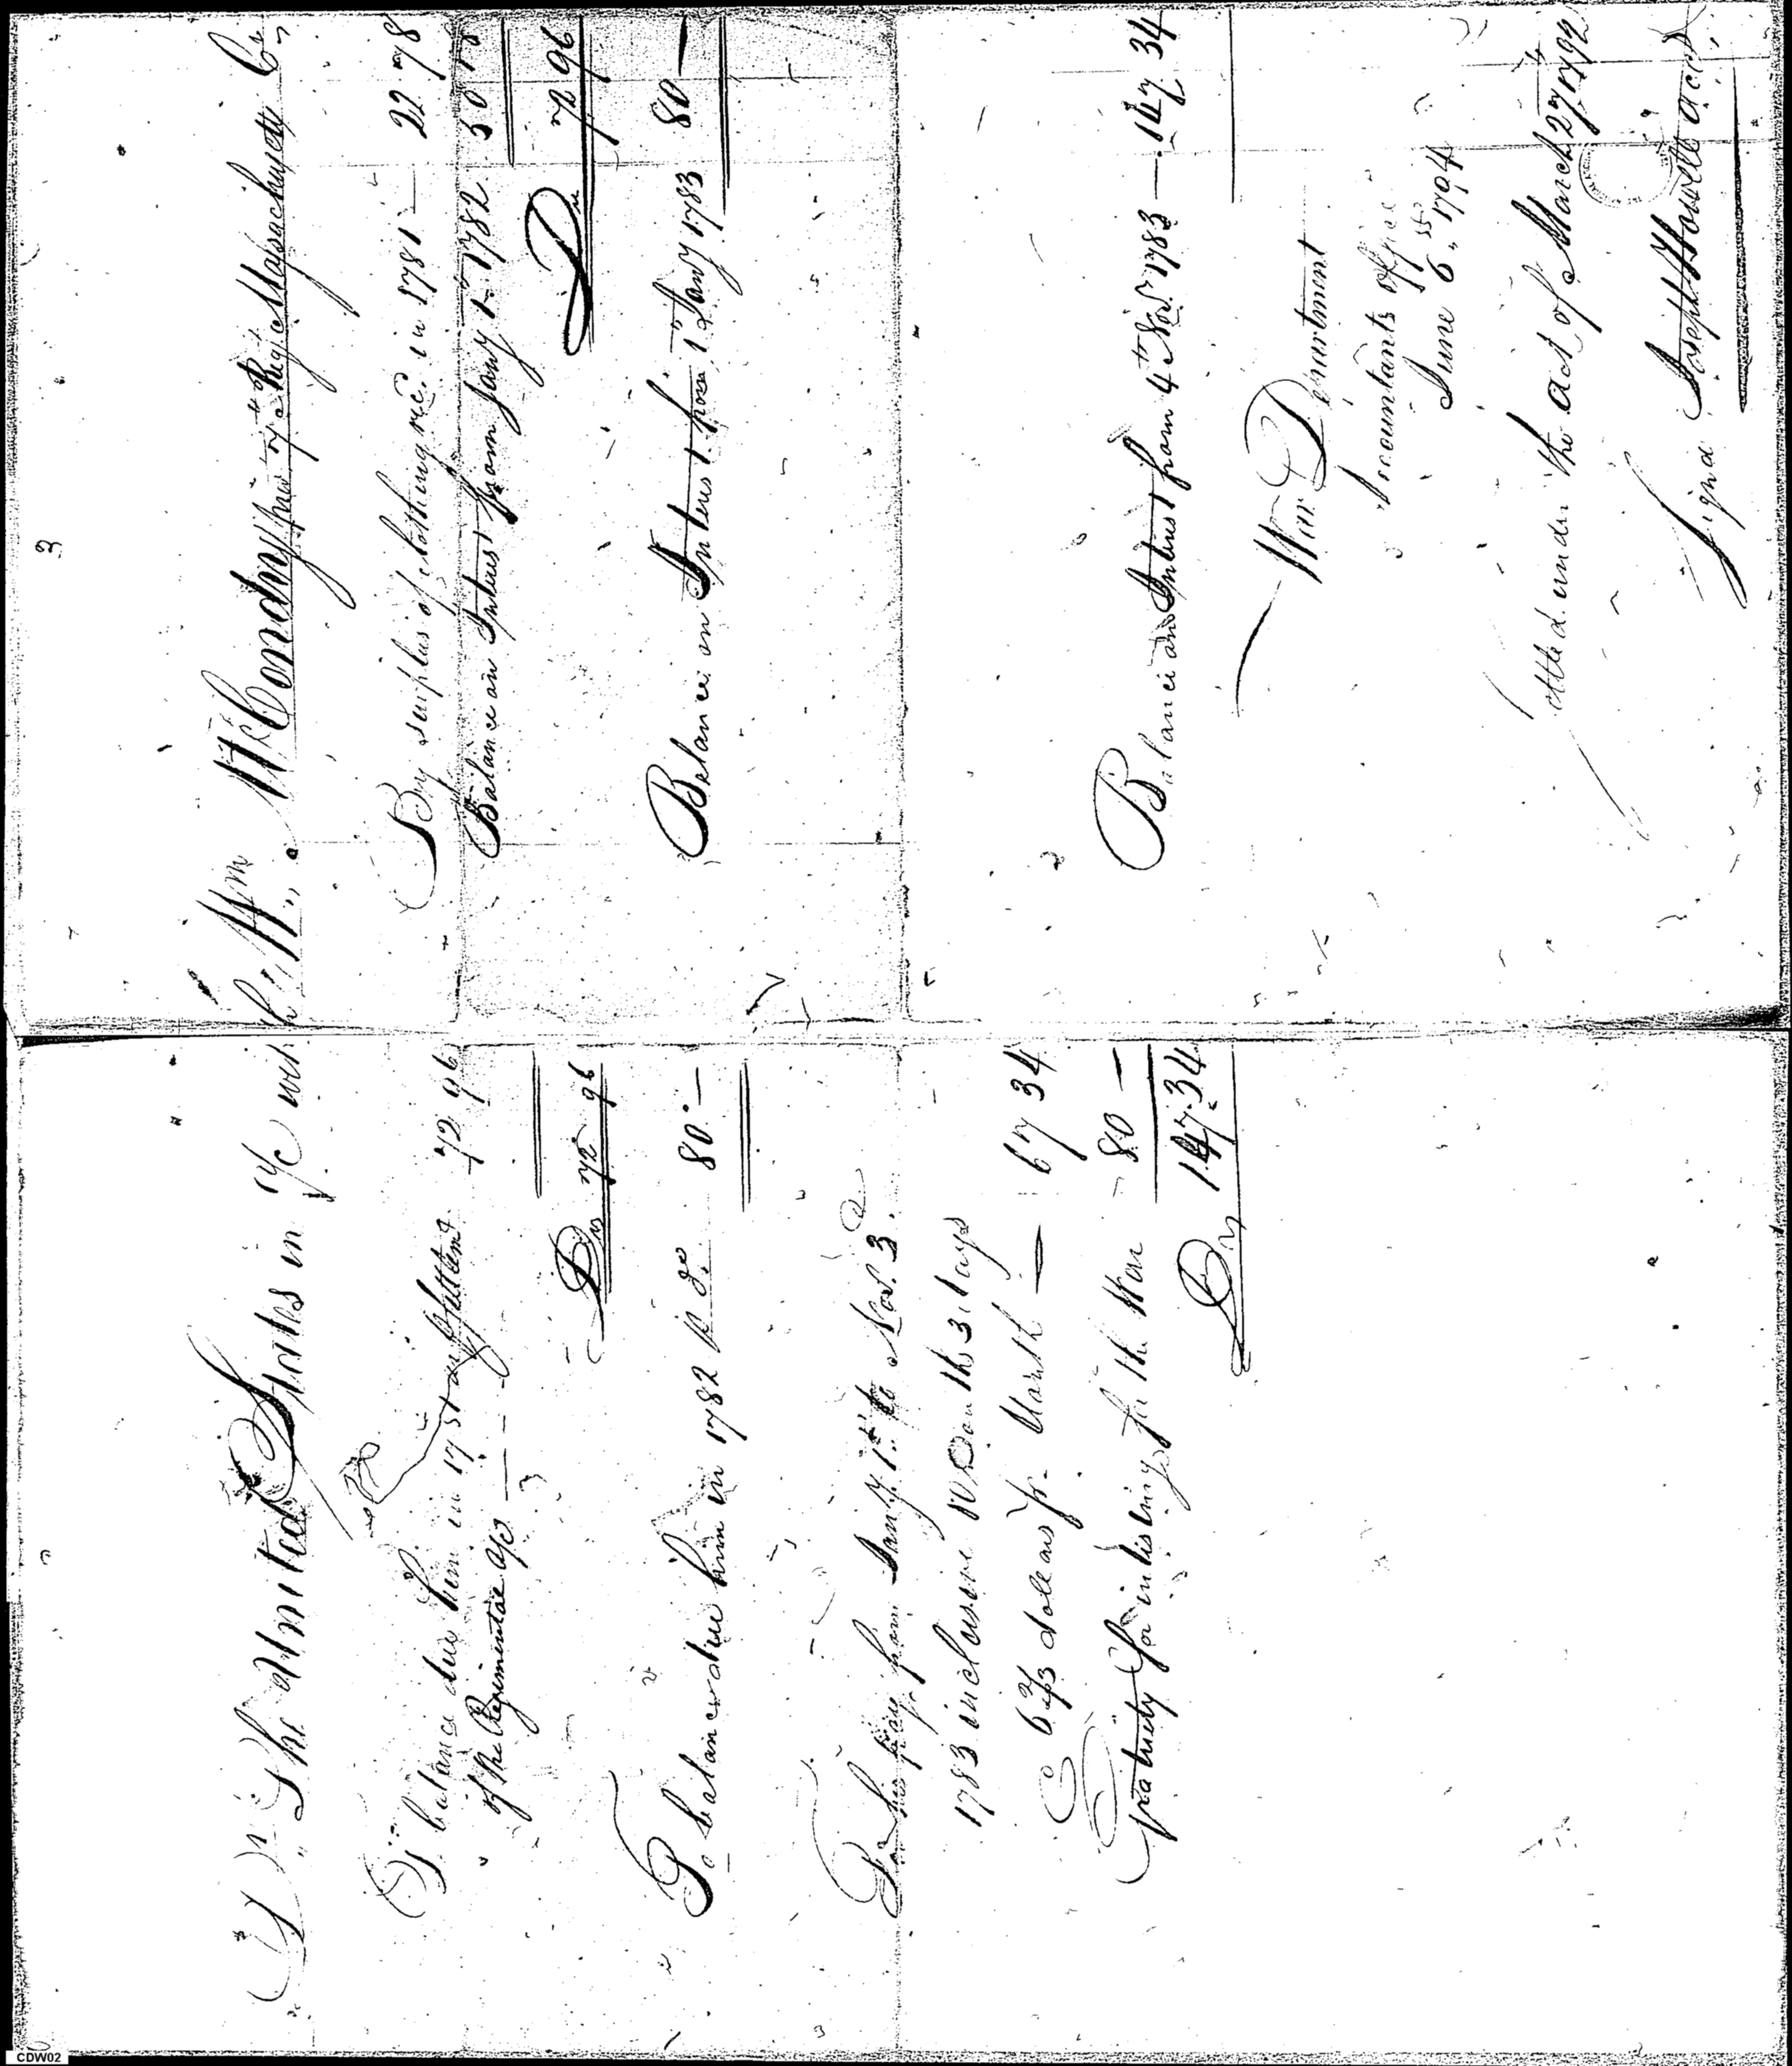 Dr The United States in a/c with
To balance due him in 17 81 as pr Settlemt
of the Regimental a/cs — — — 72 96
Drs 72 96
To balance due him in 1782 pr do. 80. —
To his pay from Jany 1st to Nov. 3d
1783 inclusive 10 Months 3 days
@ 6 2/3 dollars pr. Month — 67 34
Gratuity for inlisting for the War - 80 —
Drs 147.34
3
Wm. McCondry 7th Regt Massachusetts Cr
By surplus of clothing recd. in 1781 — 22 78
Balance on Interest from Jany 1st 1782. 50 18
Drs 72 96
Balance on Interest from 1st Jany 1783 80 —
Balance on Interest from 4th Novr 1783 — 147 34
War Department
Accountants office
June 6th 1794
Settled under the act of March 27th 1792
Signd Joseph Howell acct
CDW02